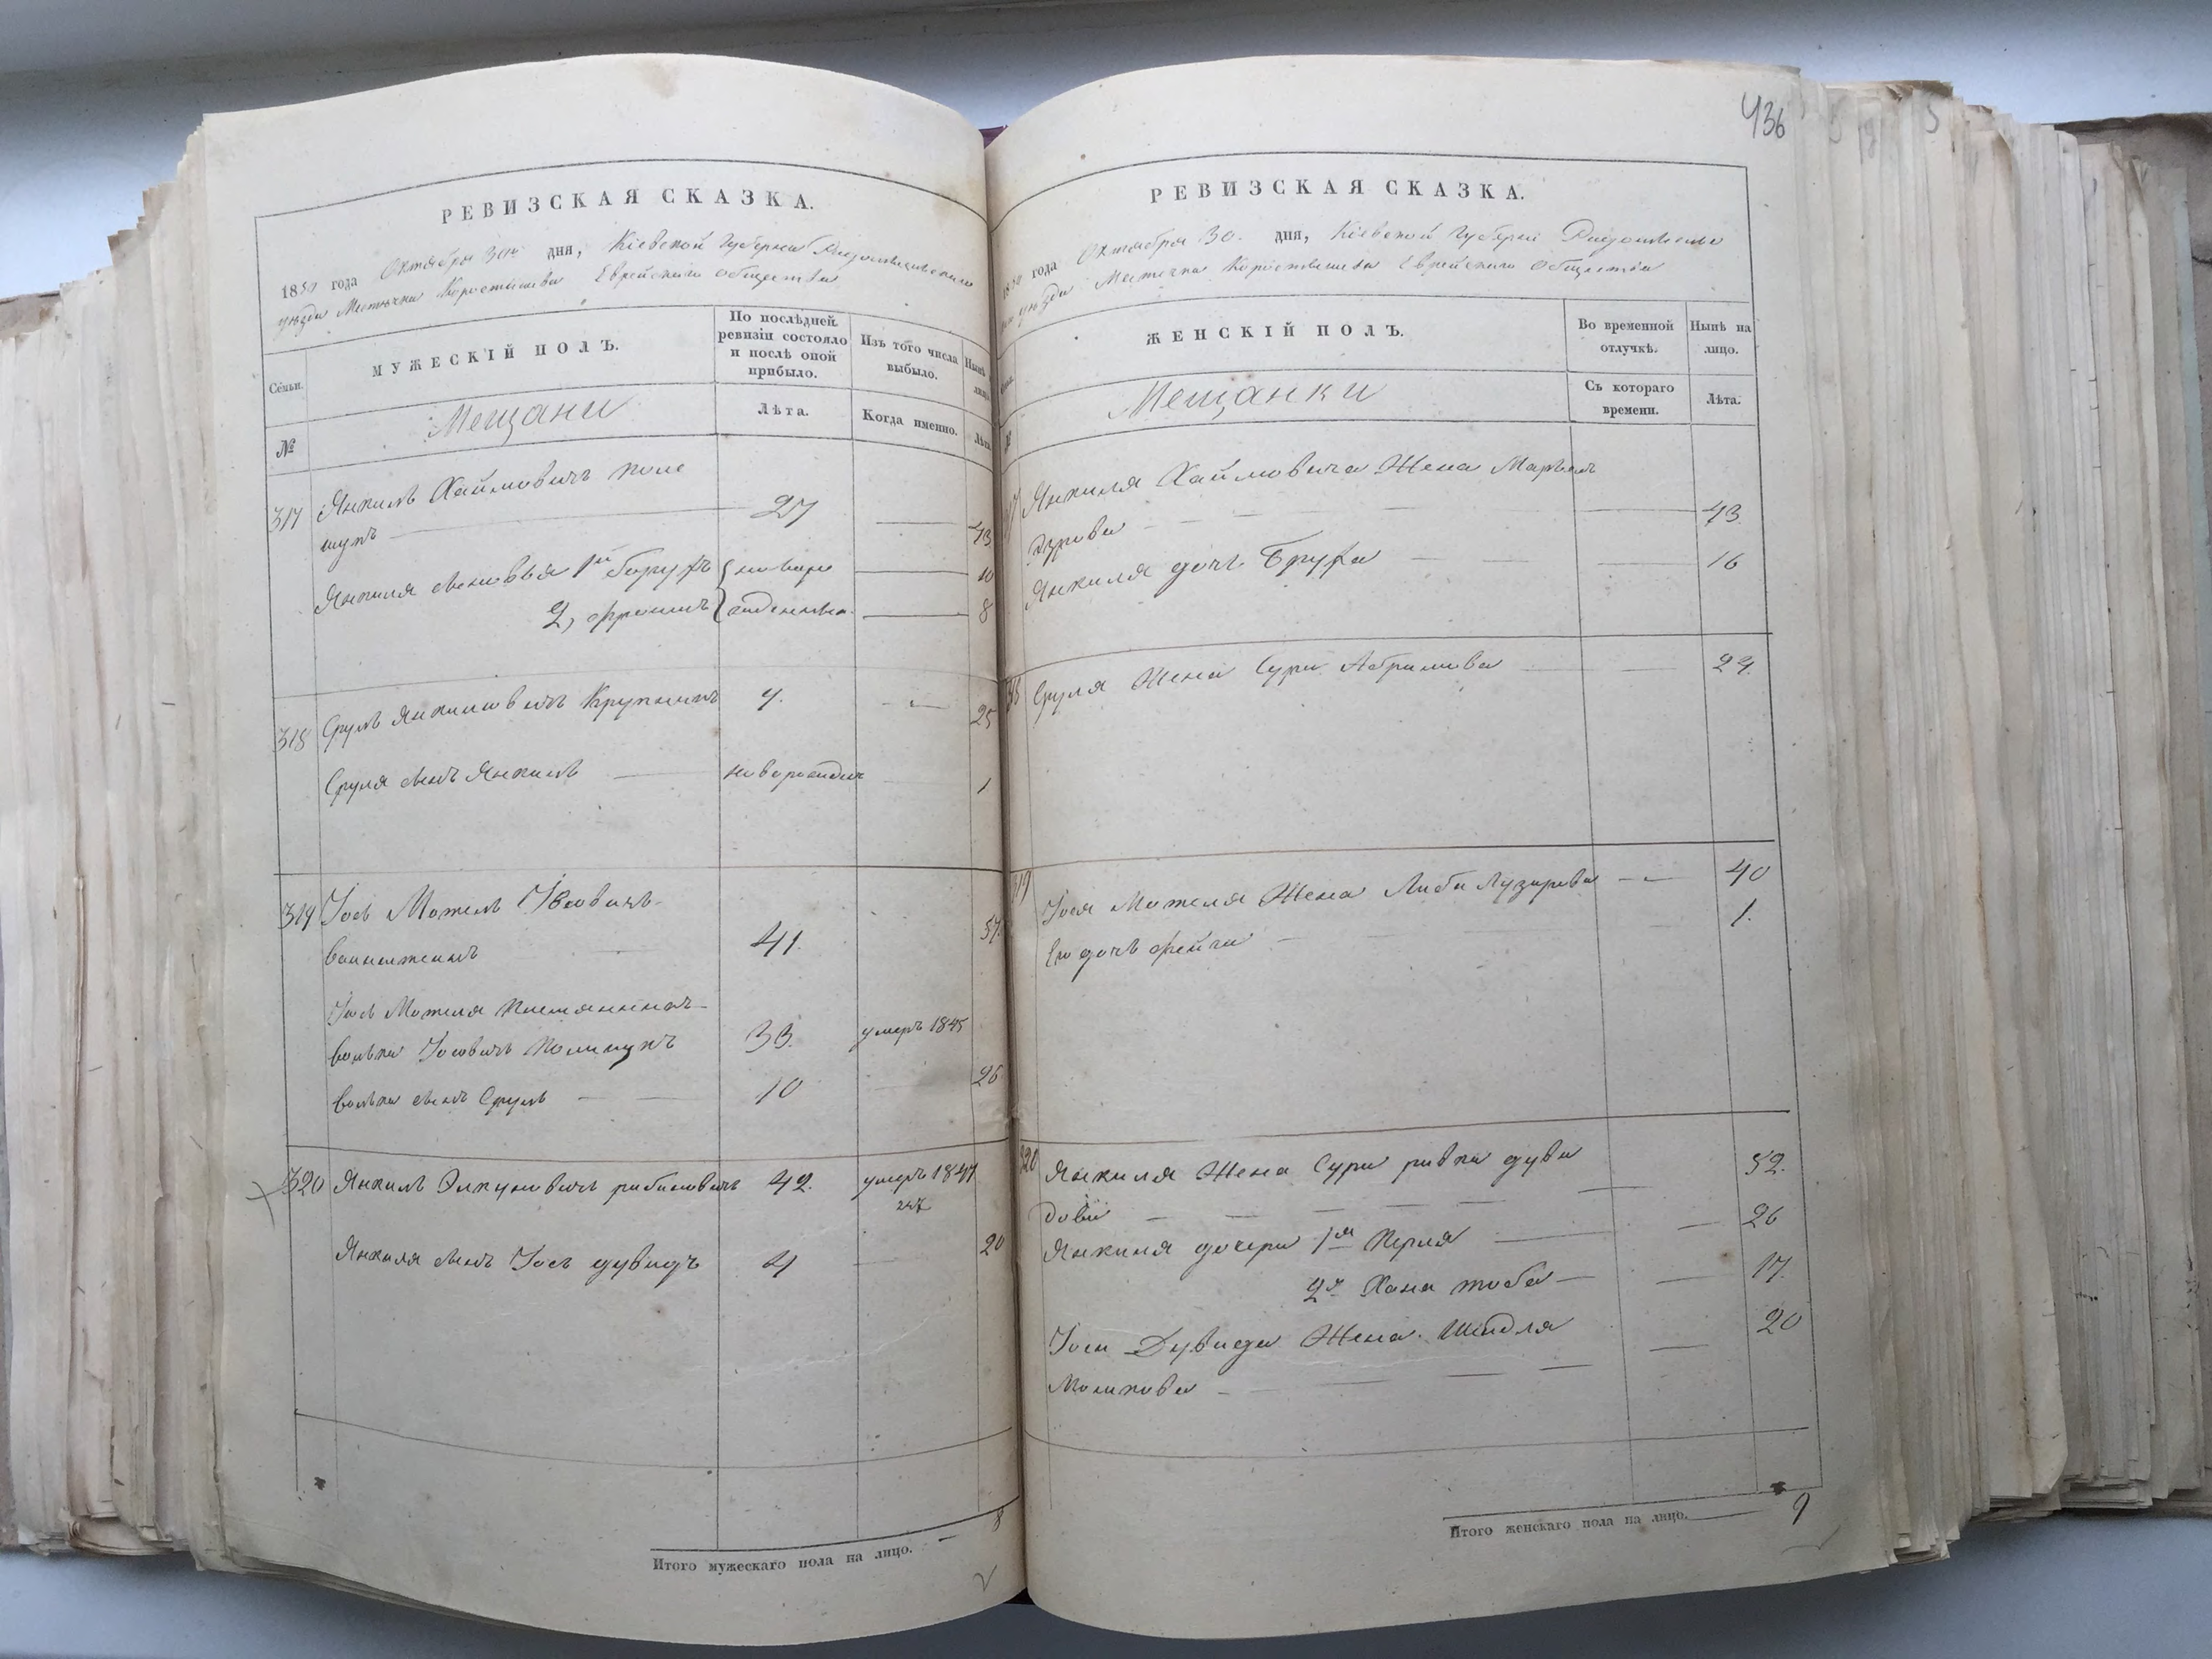 436
РЕВИЗСКАЯ СКАЗКА.
1850 года Октября 30го дня, Кіевской Губерніи Радомысльскаго
уѣзда Мѣстечка Коростышева Еврейскаго общества
Семьи.
МУЖЕСКІЙ ПОЛЪ.
По послѣдней ревизіи состояло и послѣ оной прибыло.
Изъ того числа выбыло.
Нынѣ на лицо.
№
Мещани
Лѣта.
Когда именно.
Лѣта.
317 Янкиль Хаймовичъ поли
щукъ 27 43
Янкиля сыновья 1й Борухъ новоро 10
2, Фроимъ жденные 8
318 Сруль Янкилевичъ Крупникъ 9. 25
Сруля сынъ Янкиль новорожден 1
319 Іось Мотель
41. 57.
Іось Мотеля племянникъ
Волька Іосовичъ Полищукъ 33. умеръ 1845
Волька сынъ Сруль 10 26
320 Янкиль Элкуновичъ рабиновичъ 42. умеръ 1847
Янкиля сынъ Іось дувидъ 4 20
Итого мужескаго пола на лицо. — 8
РЕВИЗСКАЯ СКАЗКА.
1850 года Октября 30. дня, Кіевской Губерніи Радомысльс
каго уѣзда Местечка Коростышева Еврейскаго Общества
ЖЕНСКІЙ ПОЛЪ.
Во временной отлучкѣ.
Нынѣ на лицо.
№
Мещанки
Съ котораго времени.
Лѣта.
317 Янкиля Хаймовича Жена
43.
Янкиля дочь Бруха 16
318 Сруля Жена Сура Абрамова 24.
319 Іося Мотеля Жена Либа Лузарова 40
Его дочь Фейга 1.
320 Янкиля Жена Сура ривка дуви 52.
дова
Янкиля дочери 1я Перля 26
2я Хана тоба 17.
Іоси Дувида Жена Шейдля 20
Мошкова
Итого женскаго пола на лицо. 9